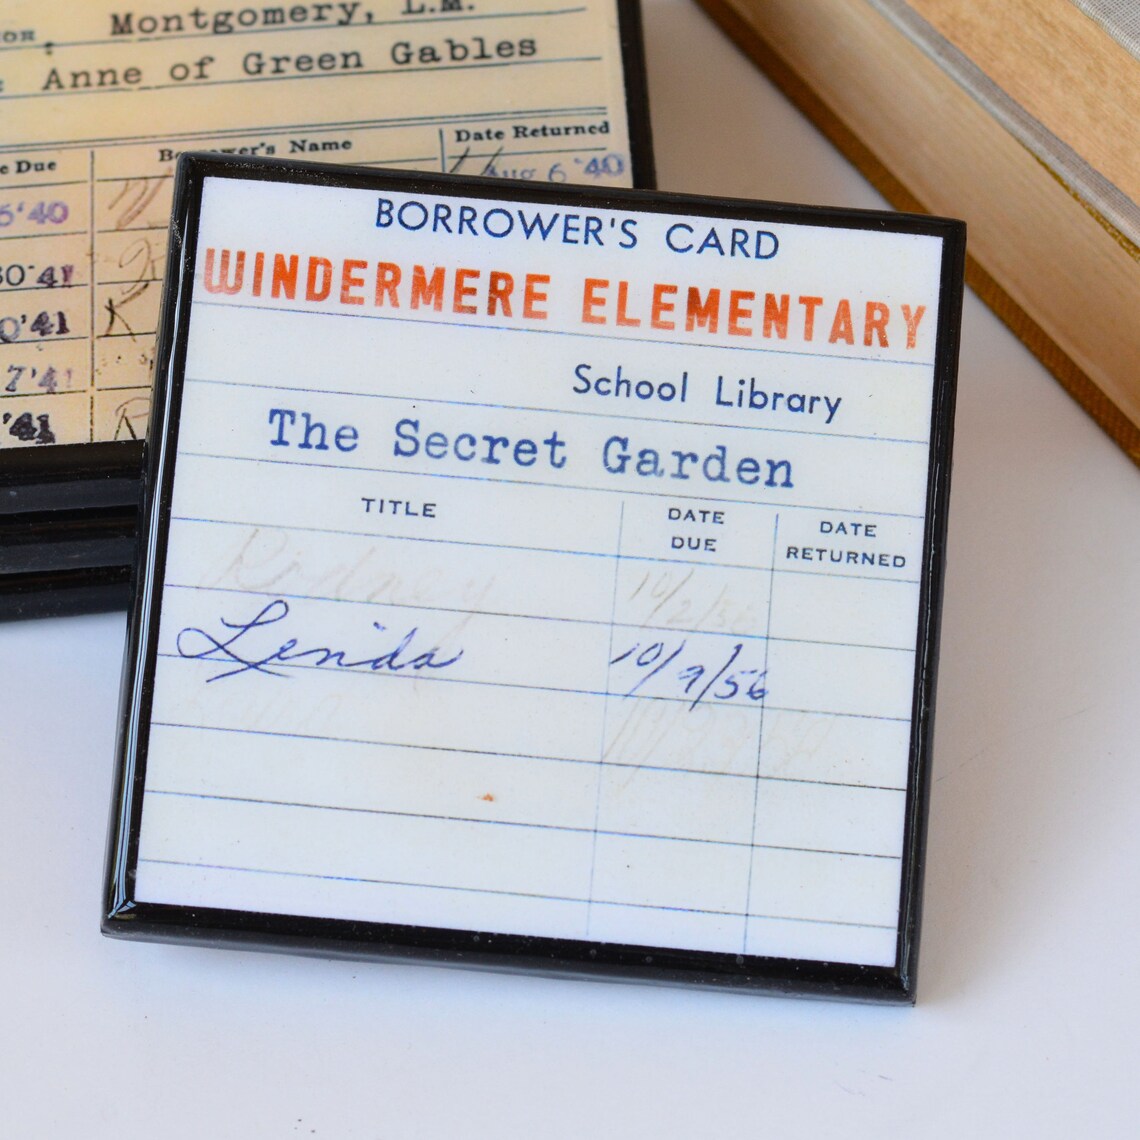 Montgomery, L.M.
Anne of Green Gables
Borrower's Name
Date Returned
e Due
Aug 6 '40
6'40
30'41
0'41
7'41
'41
BORROWER'S CARD
WINDERMERE ELEMENTARY
School Library
The Secret Garden
TITLE
DATE DUE
DATE RETURNED
Rodney 10/2/56
Linda 10/9/56